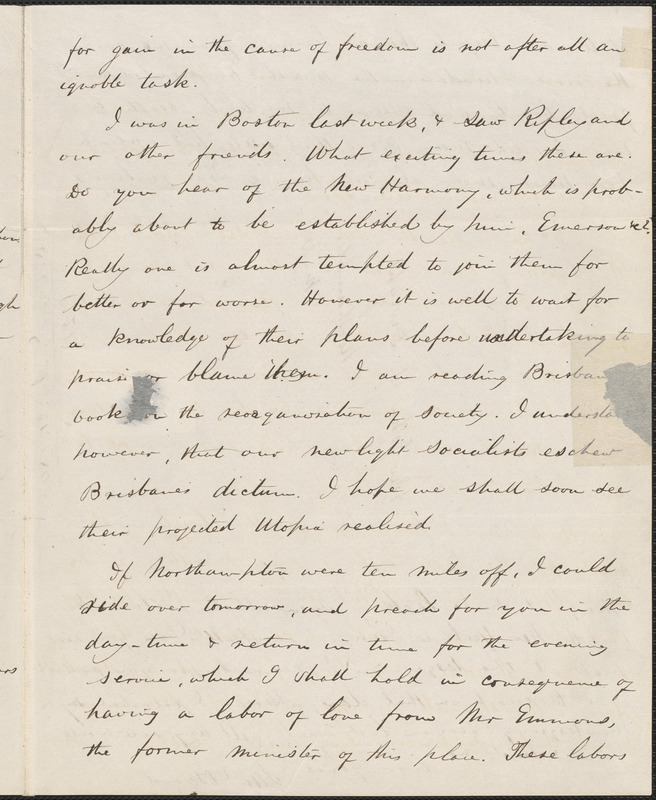 for gain in the cause of freedom is not after all an
ignoble task.
I was in Boston last week, & saw Ripley and
our other friends. What exciting times these are.
Do you hear of the New Harmony, which is prob-
ably about to be established by him, Emerson &c?
Really one is almost tempted to join them for
better or for worse. However it is well to wait for
a knowledge of their plans before undertaking to
praise or blame them. I am reading Brisban
book on the reorganisation of society. I understa
however, that our new light socialists eschew
Brisbane's dictum. I hope we shall soon see
their projected Utopia realised.
If Northampton were ten miles off, I could
ride over tomorrow, and preach for you in the
day-time & return in time for the evening
service, which I shall hold in consequence of
having a labor of love from Mr Emmons,
the former minister of this place. These labors